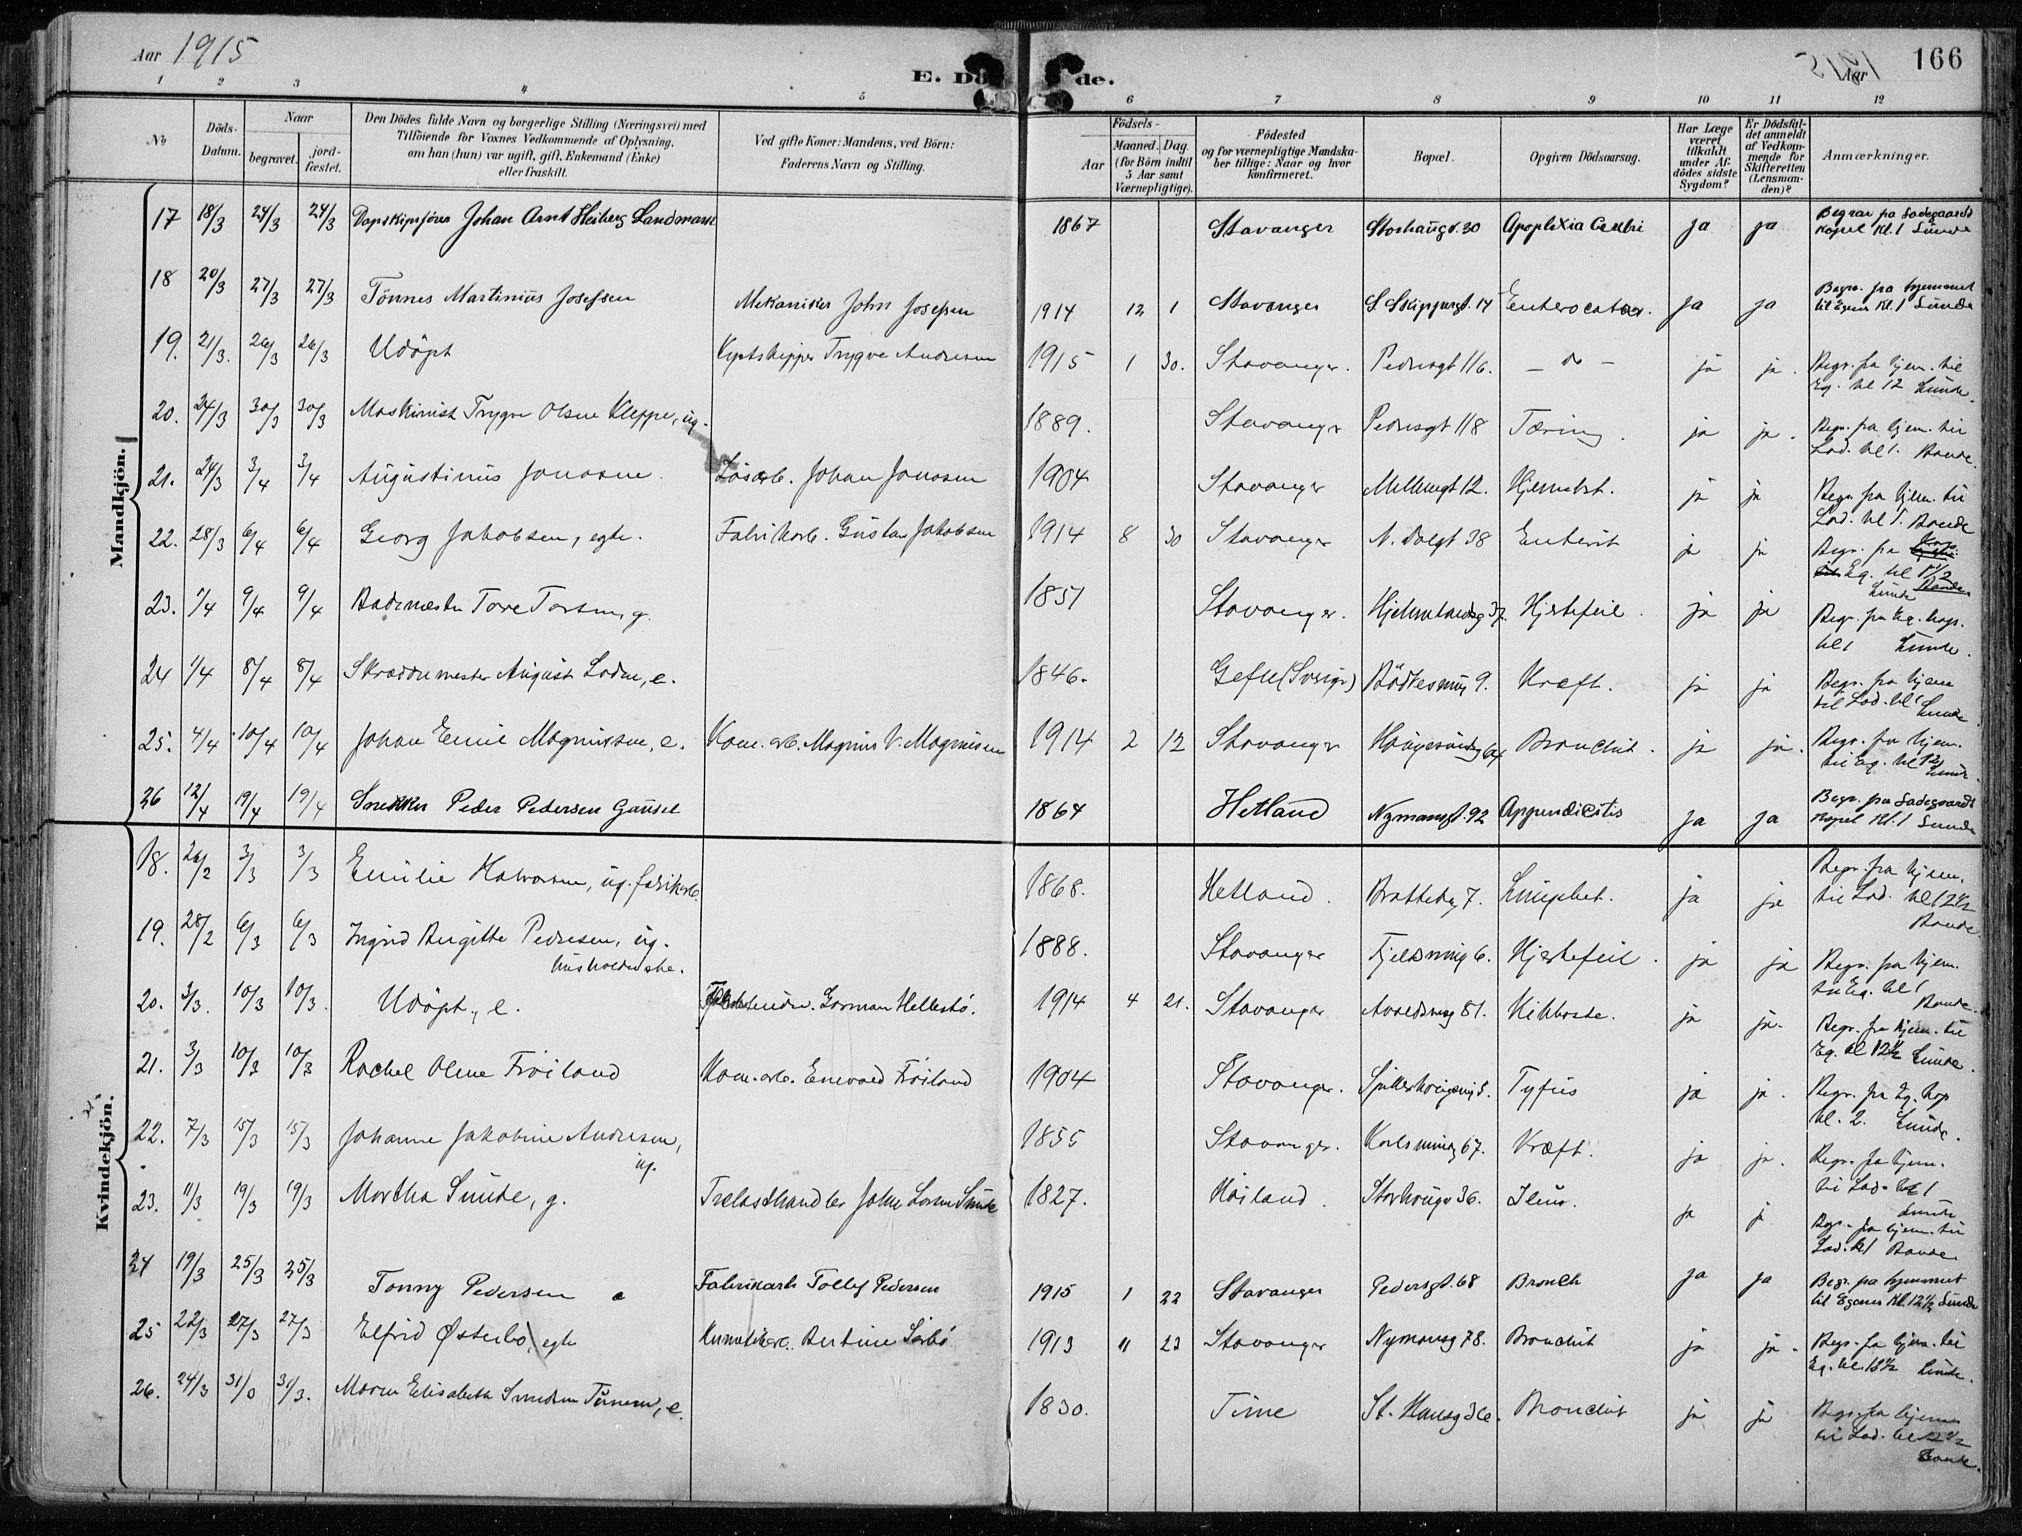 Aar 1915
E. Dö de.
Aar 1915 166
1 2 3 4 5 6 7 8 9 10 11 12
No
Döds-Datum.
Naar
begravet. jord-fæstet.
Den Dödes fulde Navn og borgerlige Stilling (Næringsvei) med
Tilföiende for Voxnes Vedkommende af Oplysning,
om han (hun) var ugift, gift, Enkemand (Enke)
eller fraskilt.
Ved gifte Koner: Mandens, ved Börn:
Faderens Navn og Stilling.
Födsels-
Aar Maaned. Dag.
(for Börn indtil
5 Aar samt
Værnepligtige).
Födested
og for værnepligtige Mandska-
ber tillige: Naar og hvor
konfirmeret.
Bopæl.
Opgiven Dödsaarsag.
Har Læge
været
tilkaldt
under Af-
dödes sidste
Sygdom?
Er Dödsfal-
det anmeldt
af Vedkom-
mende for
Skifteretten
(Lensman-
den)?
Anmærkninger.
Mandkjön.
17 18/3 24/3 24/3 Dampskipsförer Johan Arnt Heiberg Landmark 1867 Stavanger Storhaugv. 30 Apoplexia Cerebri ja ja Begrav fra Ladegaards Kapel Kl. 1 Lunde
18 20/3 27/3 27/3 Tönnes Martinius Josefsen Mekaniker John Josefsen 1914 12 1 Stavanger S. Skippergt. 14 Enterocatar. ja ja Begr. fra hjemmet til Egenes Kl. 1 Lunde
19. 21/3. 26/3 26/3 Udöpt Trygve Andresen 1915 1 30. Stavanger. Pedersgt 116. — do — ja ja. Begr. fra hjem. til Eg. kl 12 Lunde.
20. 24/3 30/3 30/3 Maskinist Trygve Olsen Kleppe, ug. 1889. Stavanger Pedersgt 118 Tæring. ja ja. Begr. fra hjem. til Lad. kl 1. Bonde.
21. 24/3 3/4 3/4 Augustinus Jonasen. Lösarb. Johan Jonasen 1904 Stavanger Mellemgt 12. Hjernebet. ja ja Begr fra hjem. til Lad. kl 1. Bonde
22. 28/3 6/4 6/4 Georg Jakobsen, egte. Fabrikarb. Gustav Jakobsen 1914 8 30 Stavanger N. Dalgt 38 Enterit ja ja Begr. fra Eg. kl Lunde
23. 1/4 9/4 9/4 Bademester Tore Torsen, g. 1851 Stavanger. Hjelmelandsg 37. Hjertefeil. ja ja Begr. fra Eg. kap. kl 1 Lunde.
24 1/4 8/4 8/4 Skræddermester August Loden, e. 1846. Gefle (Sverige) Bödkersmug 9. Kræft. ja ja Begr. fra hjem til Lad. kl 1 Lunde.
25. 4/4 10/4 10/4 Johan Emil Magnussen, e. Kom. arb. Magnus V. Magnussen 1914 2 12 Stavanger Haugesundsg 64 Bronchit. ja ja. Begr. fra hjem. til Eg. kl 12 Lunde.
26 12/4 19/4 19/4 Snekker Peder Pedersen Gausel 1864 Hetland Nymansgt. 92 Appendicitis ja ja Begr. fra Ladegaards Kapel Kl. 1 Lunde
Kvindekjön.
18. 26/2 3/3 3/3 Emilie Halvorsen, ug. fabrikarb. 1868. Hetland. Brattebg 7. Lungebet. ja ja Begr. fra hjem. til Lad. kl 12½ Bonde.
19. 28/2 6/3 6/3 Ingrid Birgitte Pedersen, ug. husholderske. 1888. Stavanger Fjeldsmug 6. Hjertefeil. ja ja Begr. fra hjem. til Eg. kl 1 Bonde.
20. 3/3. 10/3 10/3. Udöpt, e. Gorman Hellestö. 1914 4 21. Stavanger Avaldsneg 81. Kikhoste. ja ja. Begr. fra hjem. til Eg. kl 12½ Lunde.
21. 3/3 10/3 10/3 Rachel Oline Fröiland Kom. arb. Enevald Fröiland 1904 Stavanger. Tyfus ja ja. Begr. fra Eg. kap kl. 2. Lunde.
22. 7/3 15/3 15/3 Johanne Jakobine Andresen, ug. 1855 Stavanger. Karlsmindeg 67. Kræft. ja ja. Begr. fra hjem. til Lad. kl 1 Lunde
23. 11/3 19/3 19/3 Martha Sunde, g. Trelasthandler John Larsen Sunde 1827. Höiland. Storhaugv 36. Ileus. ja ja Begr. fra hjem. til Lad. kl 1 Bonde.
24 19/3 25/3 25/3 Tonny Pedersen e Fabrikarb Tollef Pedersen 1915 1 22 Stavanger Pedersgt. 68 Bronch ja ja Begr. fra hjemmet til Egenes Kl. 12½ Lunde
25 22/3 27/3 27/3 Elfrid Østerbo, egte Bertine Sörbö 1913 11 23 Stavanger Nymansg 78. Bronchit ja ja. Begr. fra hjem. til Eg. kl 12½ Lunde.
26. 24/3 31/0 31/3. Maren Elisabeth Tönnesen, e. 1830. Time St. Hansg 36. Bronchit ja ja Begr. fra hjem til Lad. kl 12½ Bonde.